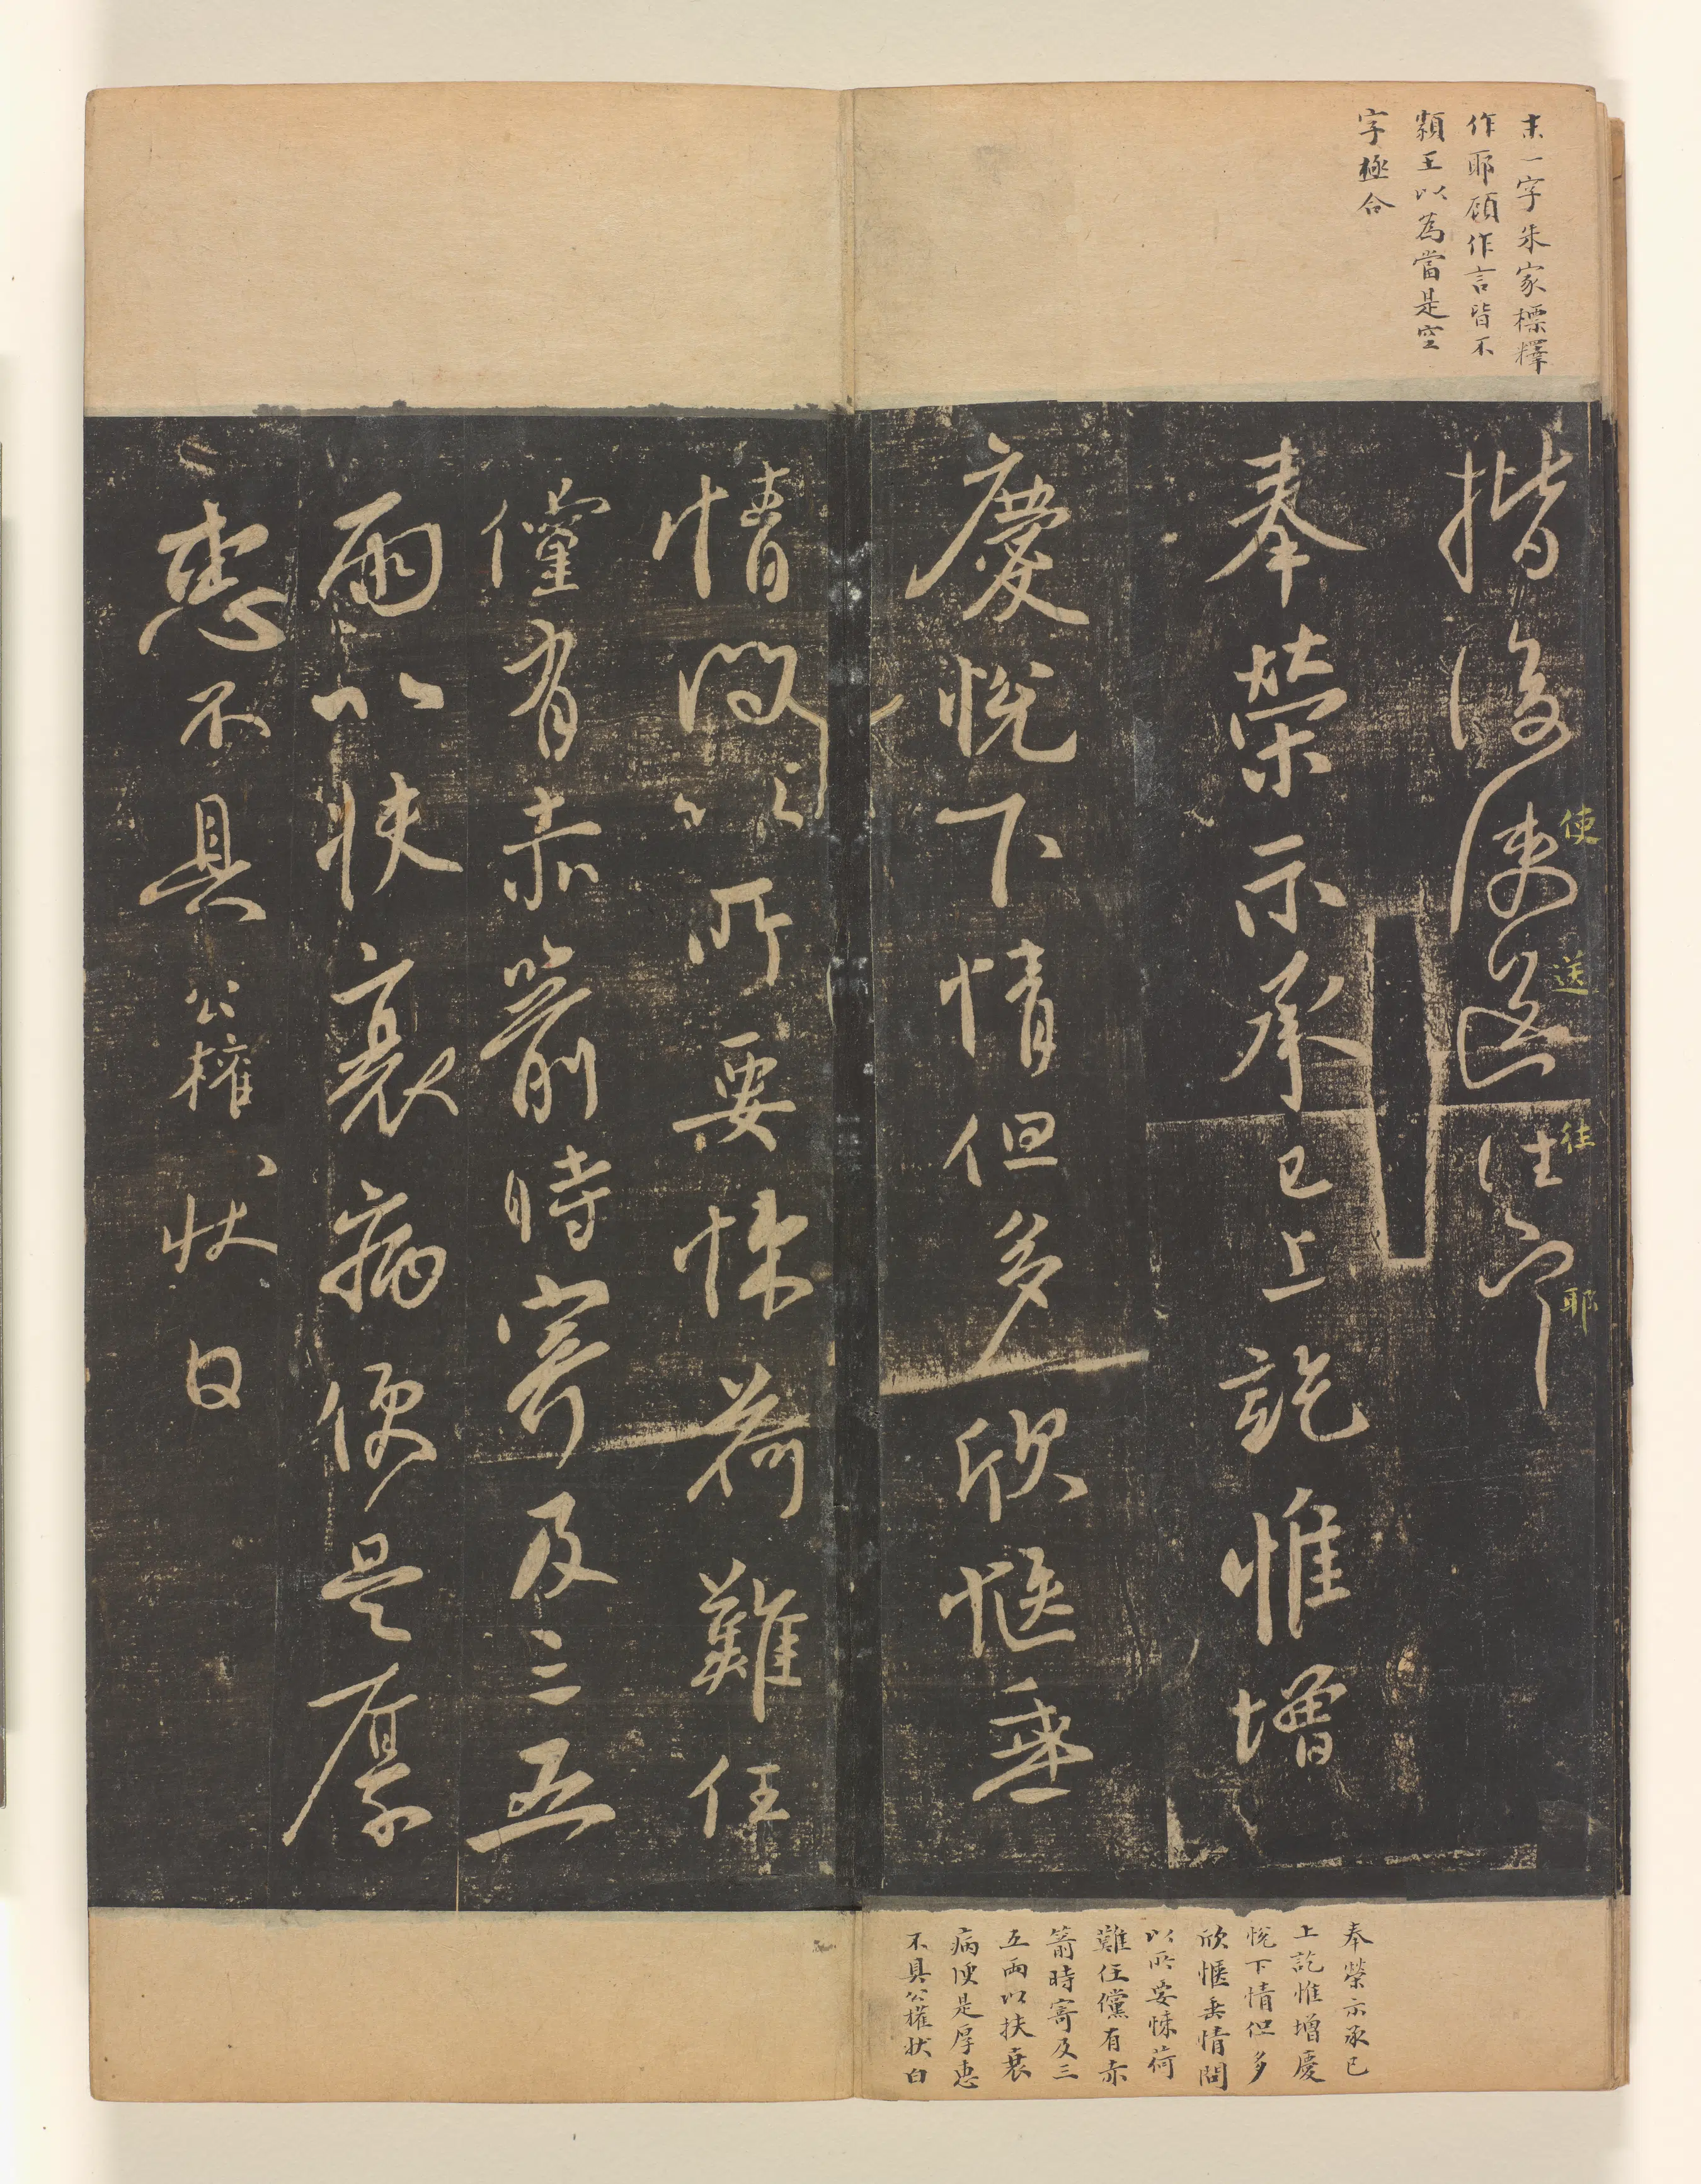 末一字朱家標釋
作耶顧作言皆不
類王以為當是空
字極合
使
送
往
耶
奉榮示承已上訖惟增
慶悅下情但多欣愜垂
情問以所要悚荷難任
儻有赤箭時寄及三五
兩以扶衰病便是厚
惠不具公權狀白
奉榮示承已
上訖惟增慶
悅下情但多
欣愜垂情問
以所要悚荷
難任儻有赤
箭時寄及三
五兩以扶衰
病便是厚惠
不具公權狀白